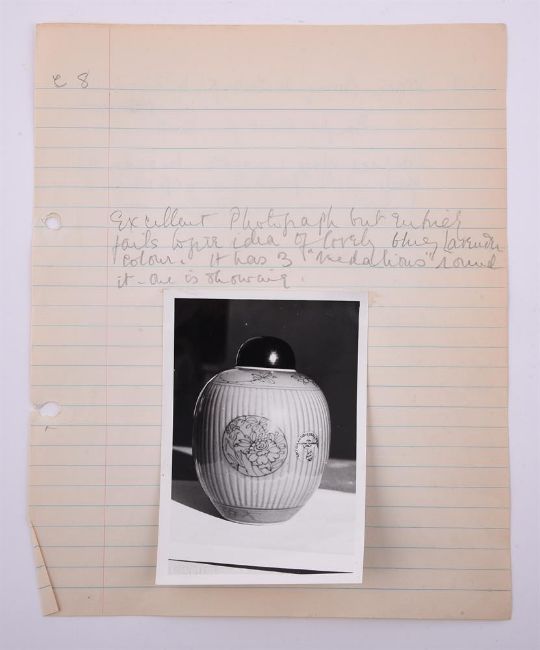 C 8
Excellent Photograph but entirely
fails to give idea of lovely bluey lavender
colour. It has 3 "medallions" round
it - one is showing.